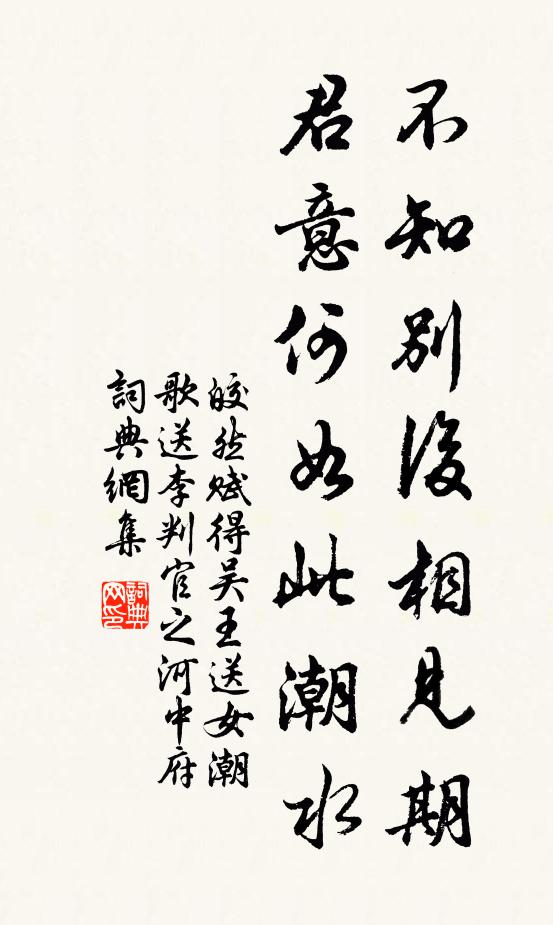 不知別後相見期
君意何如此潮水
皎然賦得吳王送女潮
歌送李判官之河中府
詞典網集
詞典網印